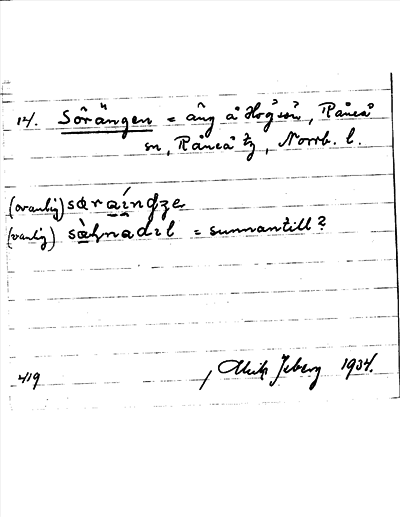 14. Sörängen = äng å Högsön, Råneå
sn, Råneå tg, Norrb. l.
(ovanlig) særaingze
(vanlig) sæhnadel = sunnantill?
419 1934.